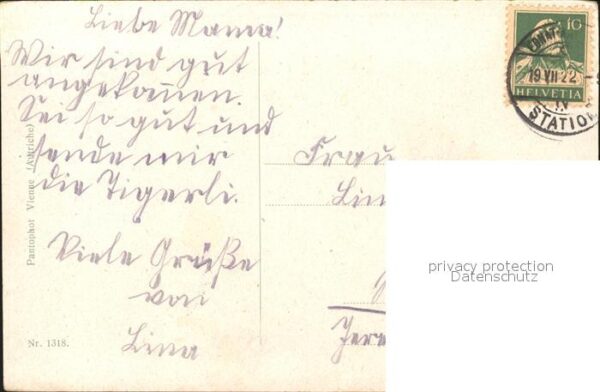 Liebe Mama!
Wir sind gut
angekommen.
Sei so gut und
sende mir
die Tigerli.
Viele Grüße
von
Lina
Pantophot Vienne (Autriche)
Nr. 1318.
10
HELVETIA
19 VII 22
IV
STATION
Frau
privacy protection
Datenschutz